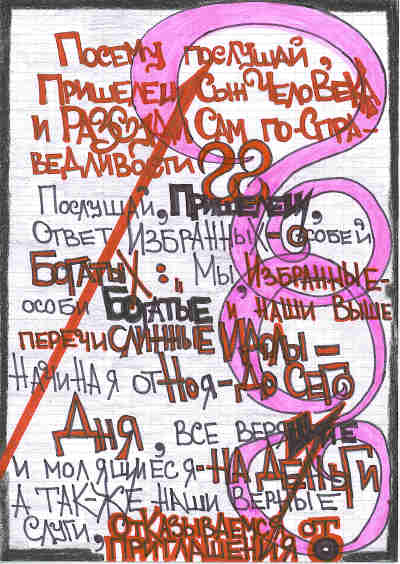 Посему послушай,
Пришелец Сын Человека
и Рассуди Сам по-Спра-
ведливости
Послушай, Пришелец,
Ответ Избранных-особей
Богатых:„ Мы, Избранные-
особи Богатые и наши выше
перечислинные Идолы-
Начиная от Ноя-до Сего
Дня, все верящие
и молящиеся-на Деньги
А так-же наши верные
слуги, отказываемся от
приглашения